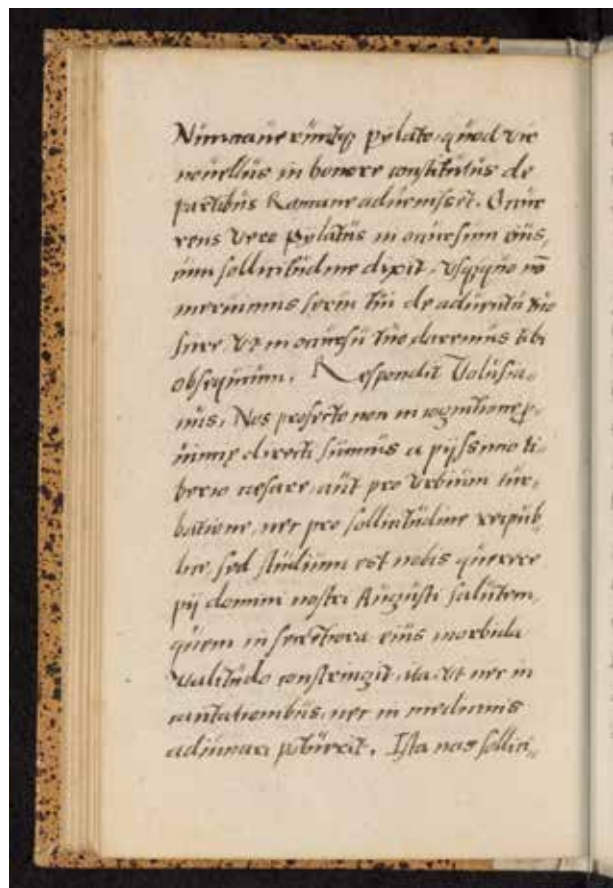 Nunciaueruntq; pylato, quod vir
nouellus in honore constitutus de
partibus Romane aduenisset. Occur
rens vero pylatus in occursum eius,
cum sollicitudine dixit, vsquequo nō
meruimus scire tui de aduentu tuo
scire, vt in occursū tuo daremus tibi
obsequium. Respondit Volusia-
nus, Nos profecto non in cognitione p-
directi sumus a pijssimo ti-
berio cesare, aut pro vrbium tur-
batione, nec pro sollicitudine reipub-
lice, sed studium est nobis querere
pij domini nostri Augusti salutem,
quem in secretiora eius morbida
valitudo constringit, ita vt nec in
cantationibus, nec in medicinis
adiuuari potuerit. Ista nos sollici-